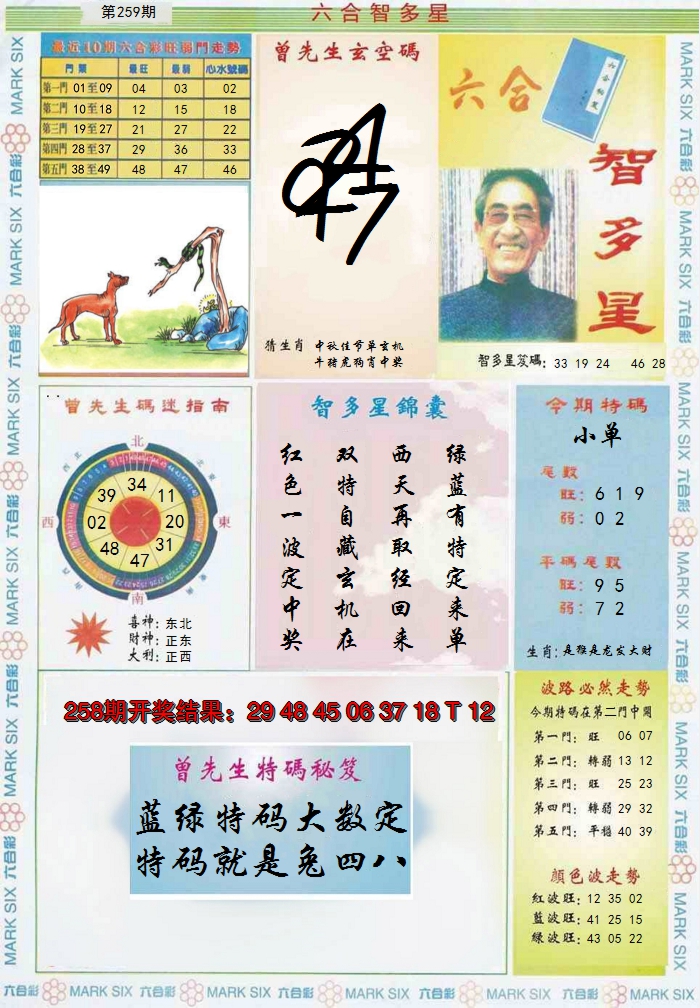 第259期
六合智多星
最近10期六合彩旺弱門走勢
門類 最旺 最弱 心水號碼
第一門 01至09 04 03 02
第二門 10至18 12 15 18
第三門 19至27 21 27 22
第四門 28至37 29 36 33
第五門 38至49 48 47 46
曾先生玄空碼
猜生肖 中秋佳节单玄机
牛猪虎狗肖中奖
六合
智多星
智多星笈碼: 33 19 24 46 28
曾先生碼迷指南
北
西
東
南
34
11
20
31
47
48
02
39
喜神: 东北
財神: 正东
大利: 正西
智多星錦囊
绿蓝有特定来单
西天再取经回来
双特自藏玄机在
红色一波定中奖
今期特碼
小单
尾數
旺: 6 1 9
弱: 0 2
平碼尾數
旺: 9 5
弱: 7 2
生肖: 是猴是龙发大财
258期开奖结果: 29 48 45 06 37 18 T 12
曾先生特碼秘笈
蓝绿特码大数定
特码就是兔四八
波路必然走勢
今期特碼在第二門中開
第一門: 旺 06 07
第二門: 轉弱 13 12
第三門: 旺 25 23
第四門: 轉弱 29 32
第五門: 平穩 40 39
顏色波走勢
紅波旺: 12 35 02
藍波旺: 41 25 15
綠波旺: 43 05 22
六合彩 MARK SIX 六合彩 MARK SIX 六合彩 MARK SIX 六合彩 MARK SIX 六合彩